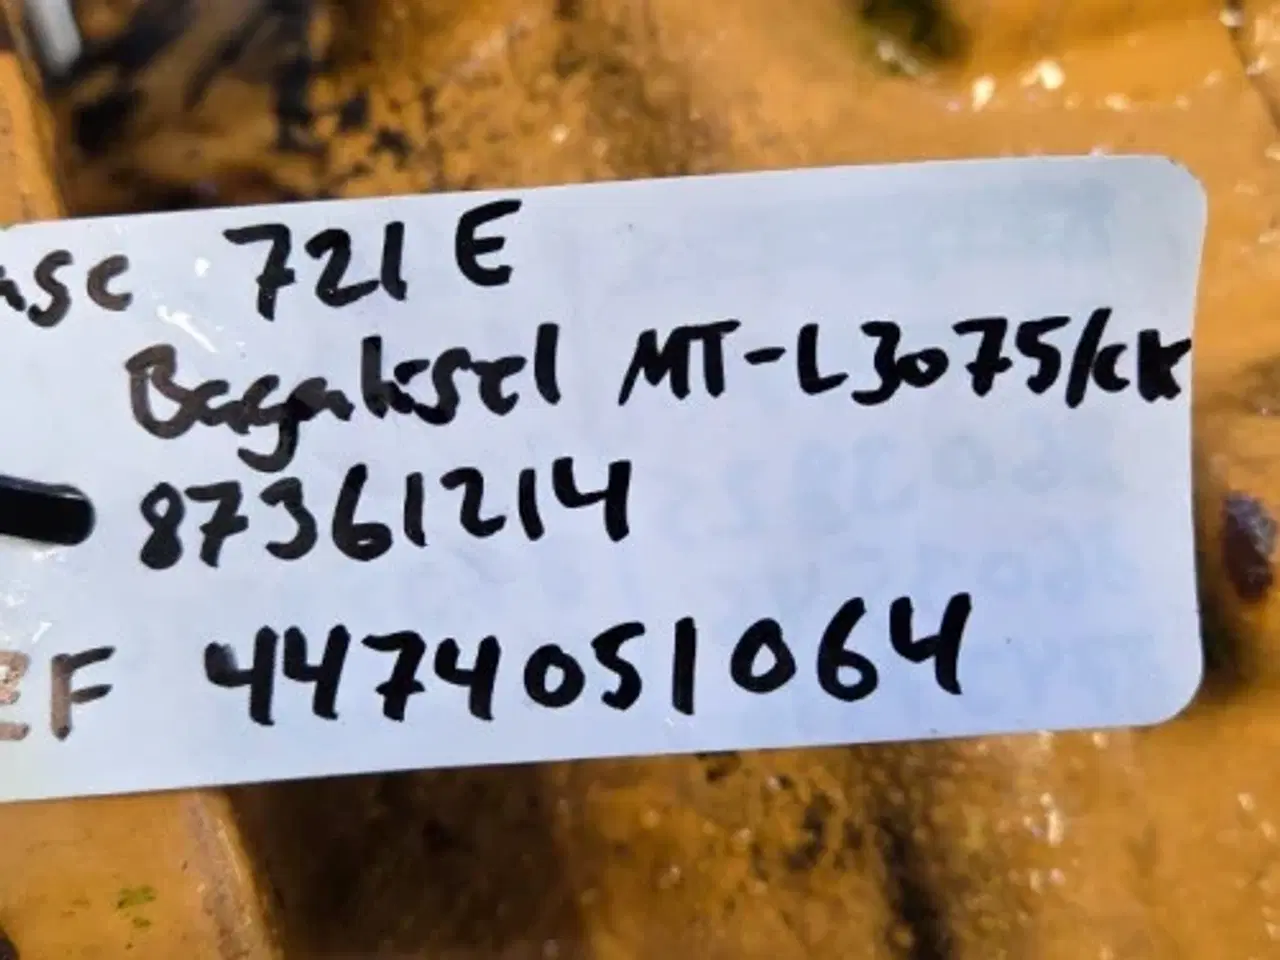 ase 721 E
Bagaksel MT-L3075/CK
87361214
ZF 4474051064